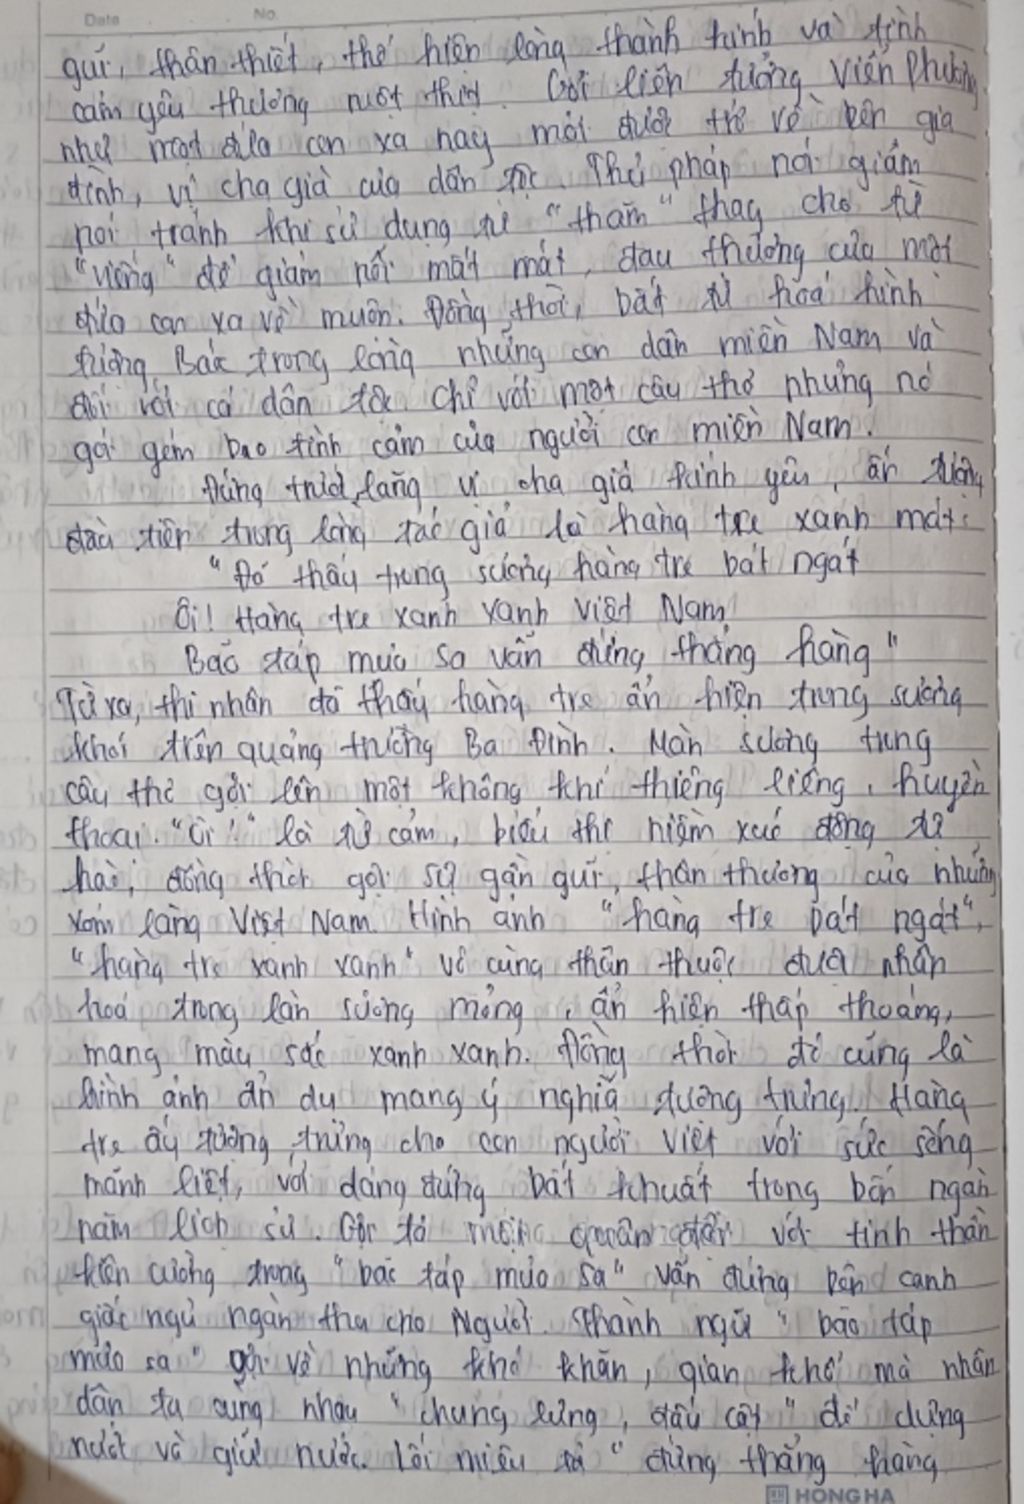 Date No.
gũi, thân thiết, thể hiện lòng thành kính và tình
cảm yêu thương ruột thịt. Gợi liên tưởng Viễn Phương
như một đứa con xa nay mới được trở về bên gia
đình, vị cha già của dân tộc. Thủ pháp nói giảm
nói tránh khi sử dụng từ "thăm" thay cho từ
"viếng" để giảm nỗi mất mát, đau thương của một
đứa con xa về muộn. Đồng thời, bất tử hoá hình
tượng Bác trong lòng những con dân miền Nam và
đối với cả dân tộc. Chỉ với một câu thơ nhưng nó
gói gém bao tình cảm của người con miền Nam.
Đứng trước lăng vị cha già kính yêu, ấn tượng
đầu tiên trong lòng tác giả là hàng tre xanh mát:
"Đã thấy trong sương hàng tre bát ngát
Ôi! Hàng tre xanh xanh Việt Nam
Bão táp mưa sa vẫn đứng thẳng hàng"
Từ xa, thi nhân đã thấy hàng tre ẩn hiện trong sương
khói trên quảng trường Ba Đình. Màn sương trong
câu thơ gợi lên một không khí thiêng liêng, huyền
thoại. "Ôi!" là từ cảm, biểu thị niềm xúc động tự
hào, đồng thời gợi sự gần gũi, thân thương của những
xóm làng Việt Nam. Hình ảnh "hàng tre bát ngát",
"hàng tre xanh xanh" vô cùng thân thuộc được nhân
hoá trong làn sương mỏng, ẩn hiện thấp thoáng,
mang màu sắc xanh xanh. Đồng thời đó cũng là
hình ảnh ẩn dụ mang ý nghĩa tượng trưng. Hàng
tre ấy tượng trưng cho con người Việt với sức sống
mãnh liệt, với dáng đứng bất khuất trong bốn ngàn
năm lịch sử. với tinh thần
kiên cường trong "bão táp mưa sa" vẫn đứng bên cạnh
giấc ngủ ngàn thu cho Người. Thành ngữ "bão táp
mưa sa" gợi về những khó khăn, gian khổ mà nhân
dân ta cùng nhau "chung lưng, đấu cật" để dựng
nước và giữ nước. Lối miêu tả "đứng thẳng hàng
HONG HA